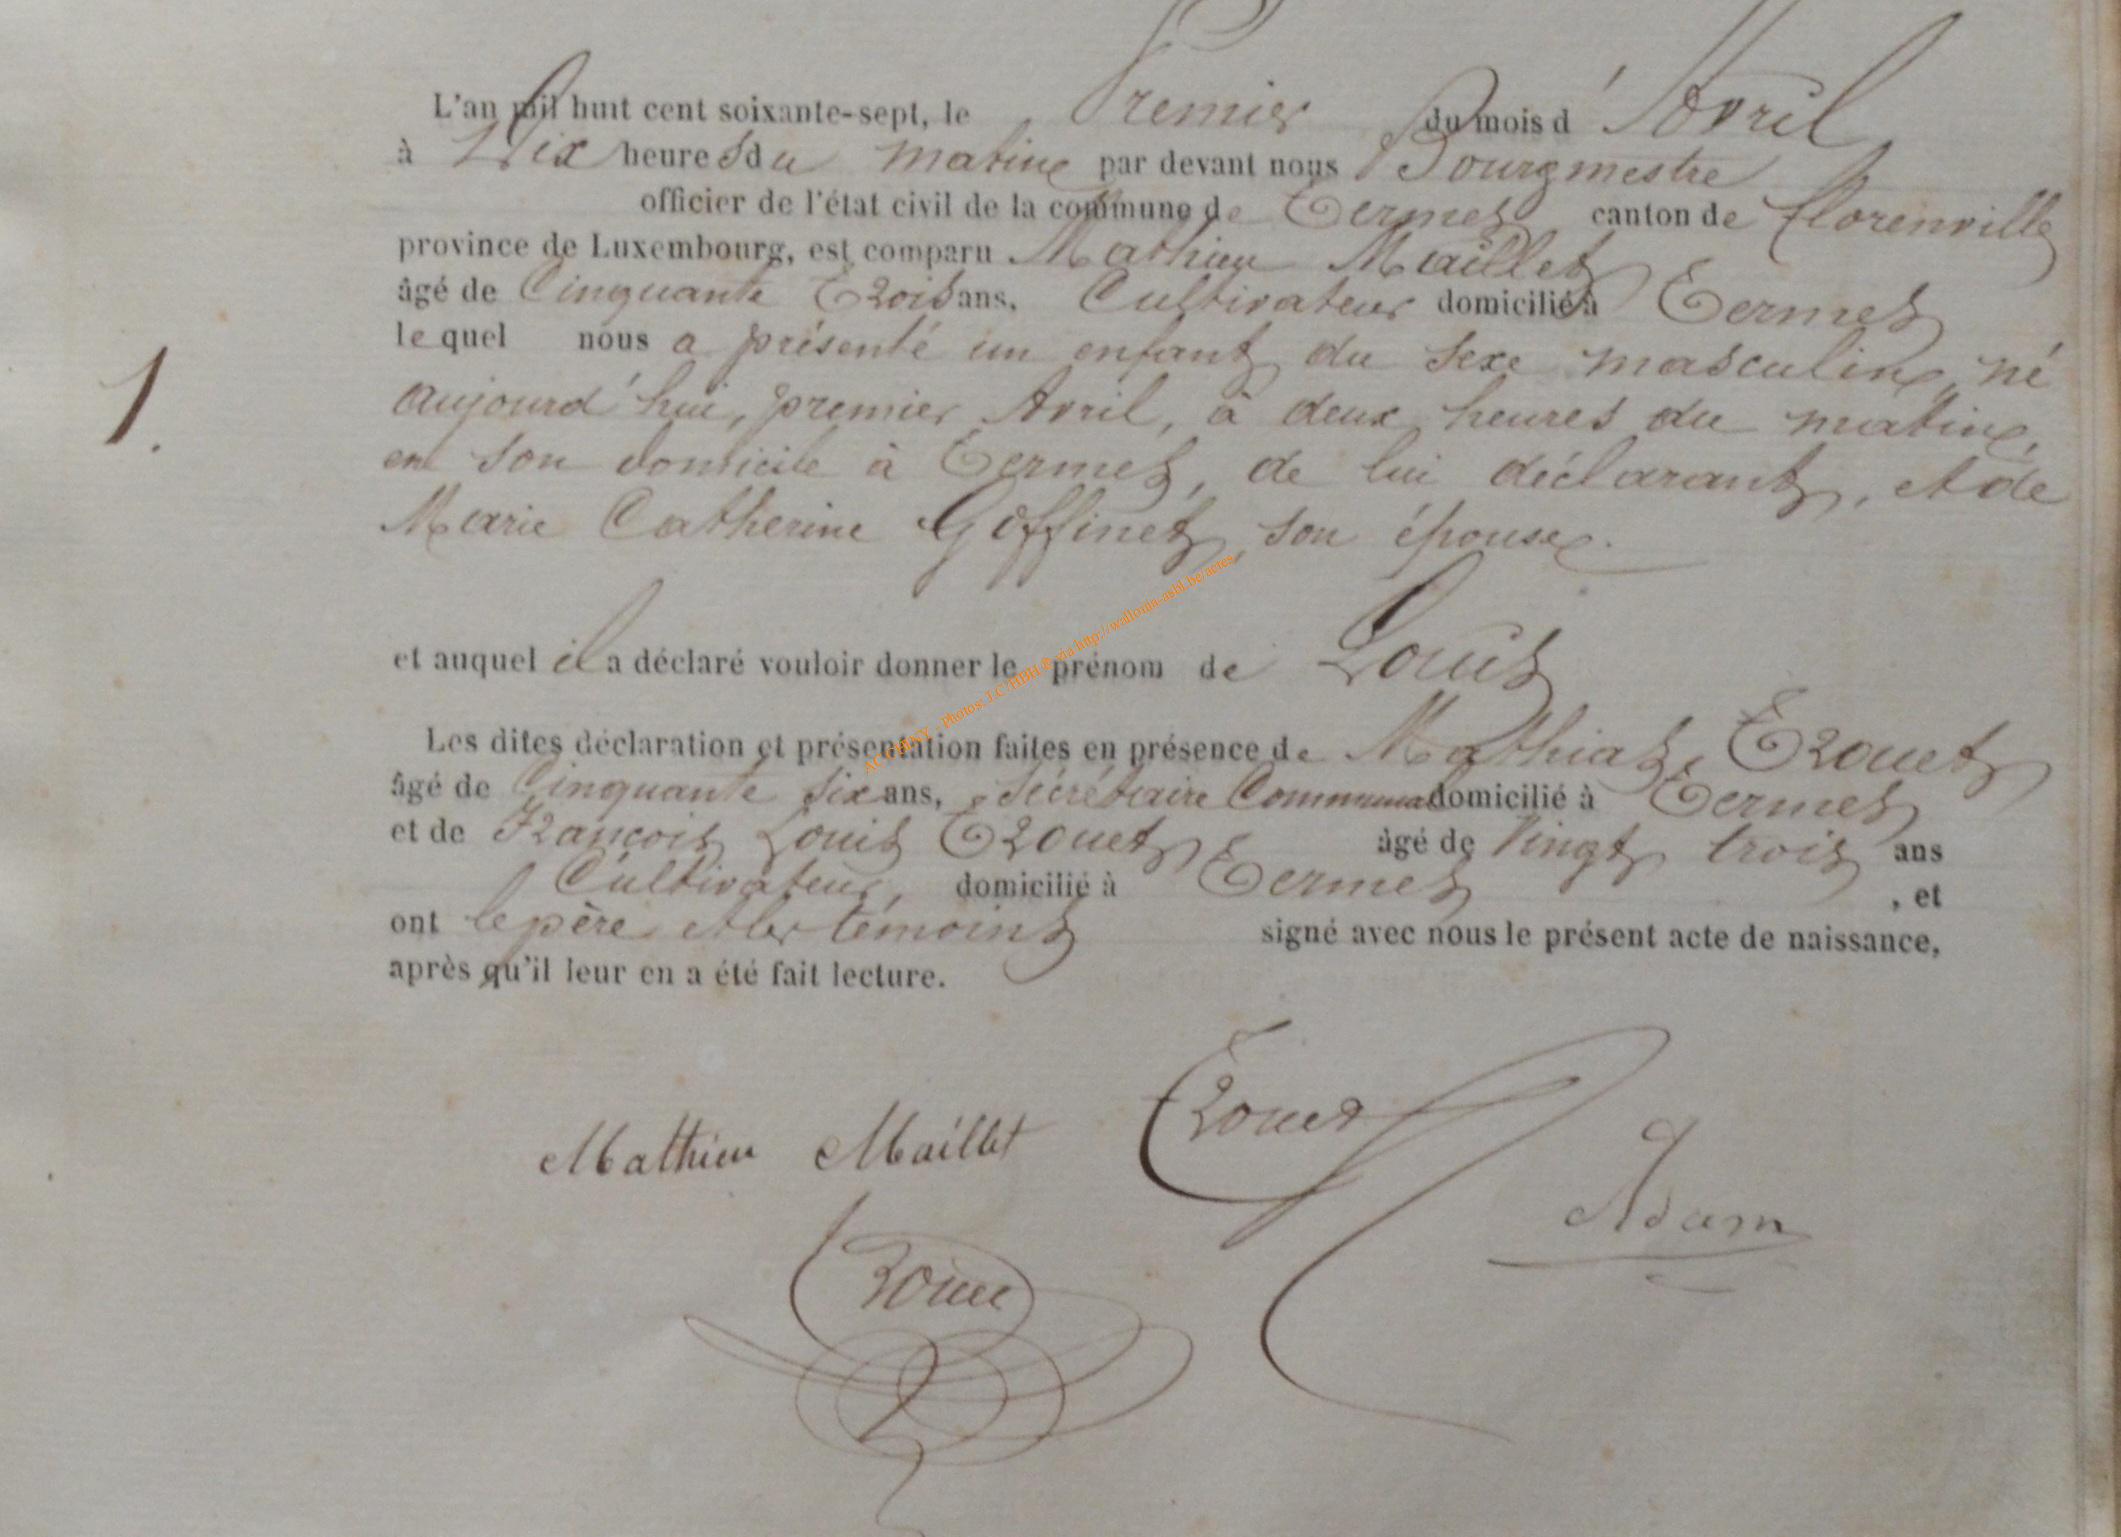 L'an mil huit cent soixante-sept, le Premier du mois d'Avril
à Dix heures du matin par devant nous Bourgmestre
officier de l'état civil de la commune de Termes canton de Florenville
province de Luxembourg, est comparu Mathieu Maillet
âgé de Cinquante Trois ans, Cultivateur domicilié à Termes
lequel nous a présenté un enfant du sexe masculin, né
aujourd'hui, premier Avril, à deux heures du matin,
en son domicile à Termes, de lui déclarant, et de
Marie Catherine Goffinet, son épouse.
1.
et auquel il a déclaré vouloir donner le prénom de Louis
Les dites déclaration et présentation faites en présence de Mathias Trouet
âgé de Cinquante six ans, Sécrétaire Communal domicilié à Termes
et de François Louis Trouet âgé de Vingt trois ans
Cultivateur, domicilié à Termes, et
ont le père et les témoins signé avec nous le présent acte de naissance,
après qu'il leur en a été fait lecture.
Mathieu Maillet Trouet
Adam
Trouet
AC CHINY - Photos: J.C/HBH © via http://wallonia-asbl.be/acres